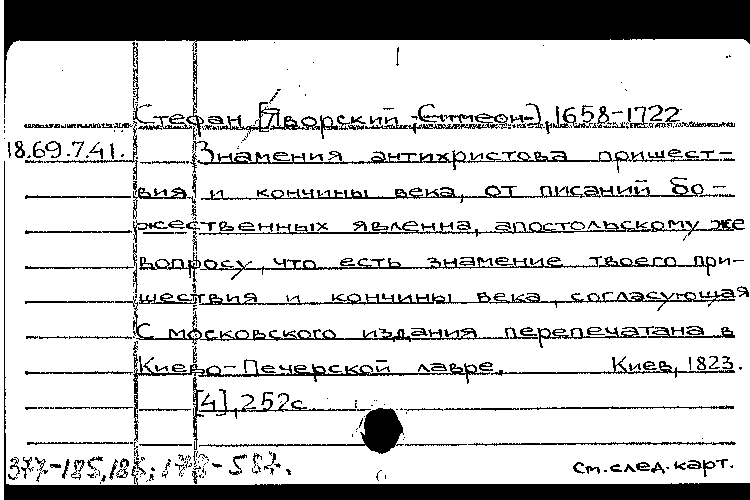 Стефан [Яворский, Симеон], 1658-1722
18.69.7.41. Знамения антихристова пришест-
вия и кончины века, от писаний бо-
жественных явленна, апостольскому же
вопросу, что есть знамение твоего при-
шествия и кончины века, согласующая
С московского издания перепечатана в
Киево-Печерской лавре. Киев, 1823.
[4], 252с.
см. след. карт.